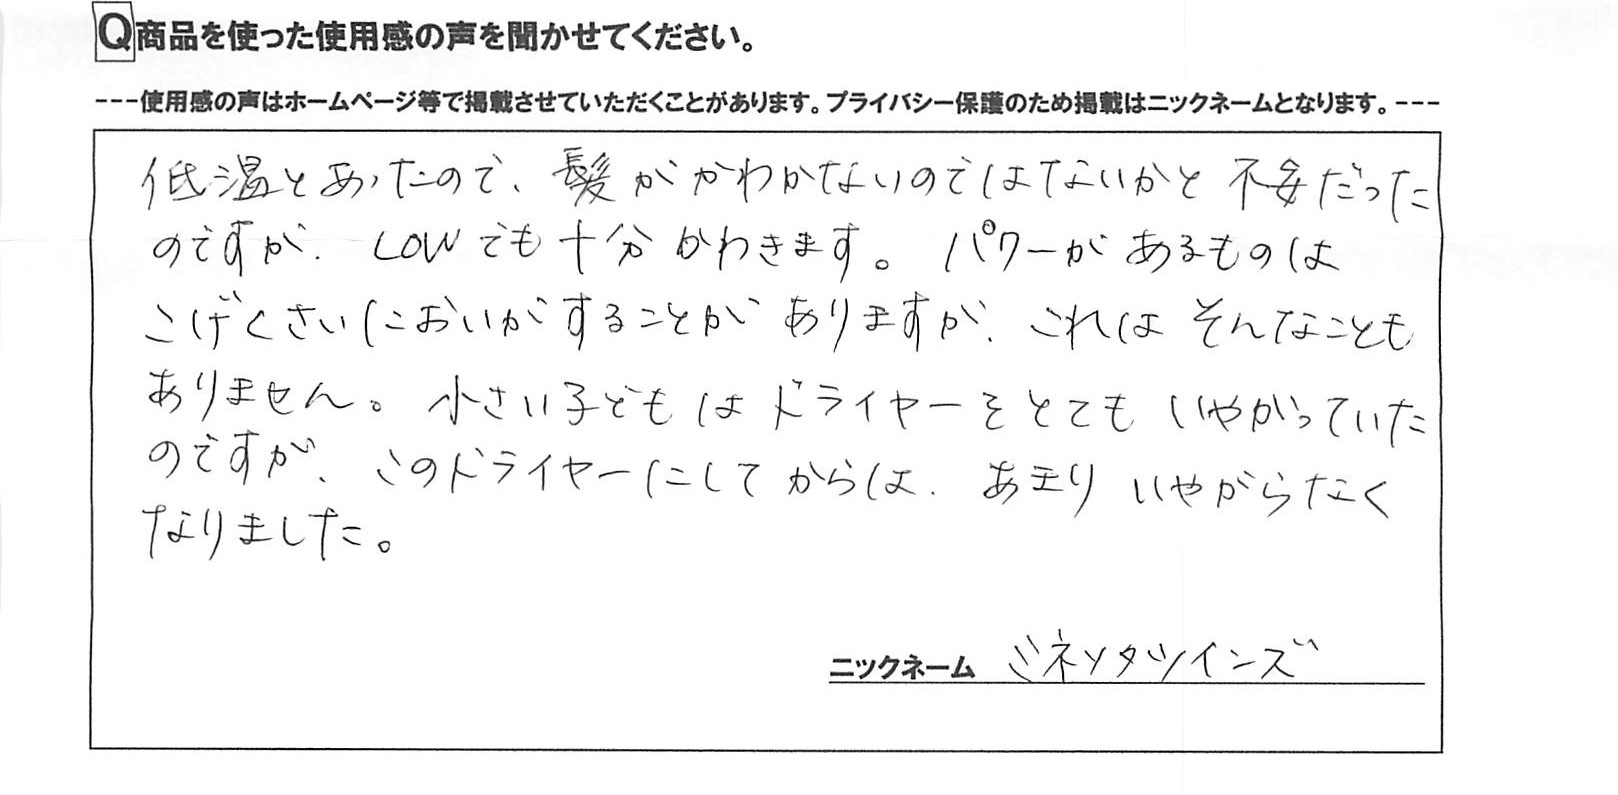 Q商品を使った使用感の声を聞かせてください。
---使用感の声はホームページ等で掲載させていただくことがあります。プライバシー保護のため掲載はニックネームとなります。---
低温とあったので、髪がかわかないのではないかと不安だった
のですが、LOWでも十分かわきます。パワーがあるものは
こげくさいにおいがすることがありますが、これはそんなことも
ありません。小さい子どもはドライヤーをとてもいやがっていた
のですが、このドライヤーにしてからは、あまりいやがらなく
なりました。
ニックネーム ミネソタツインズ